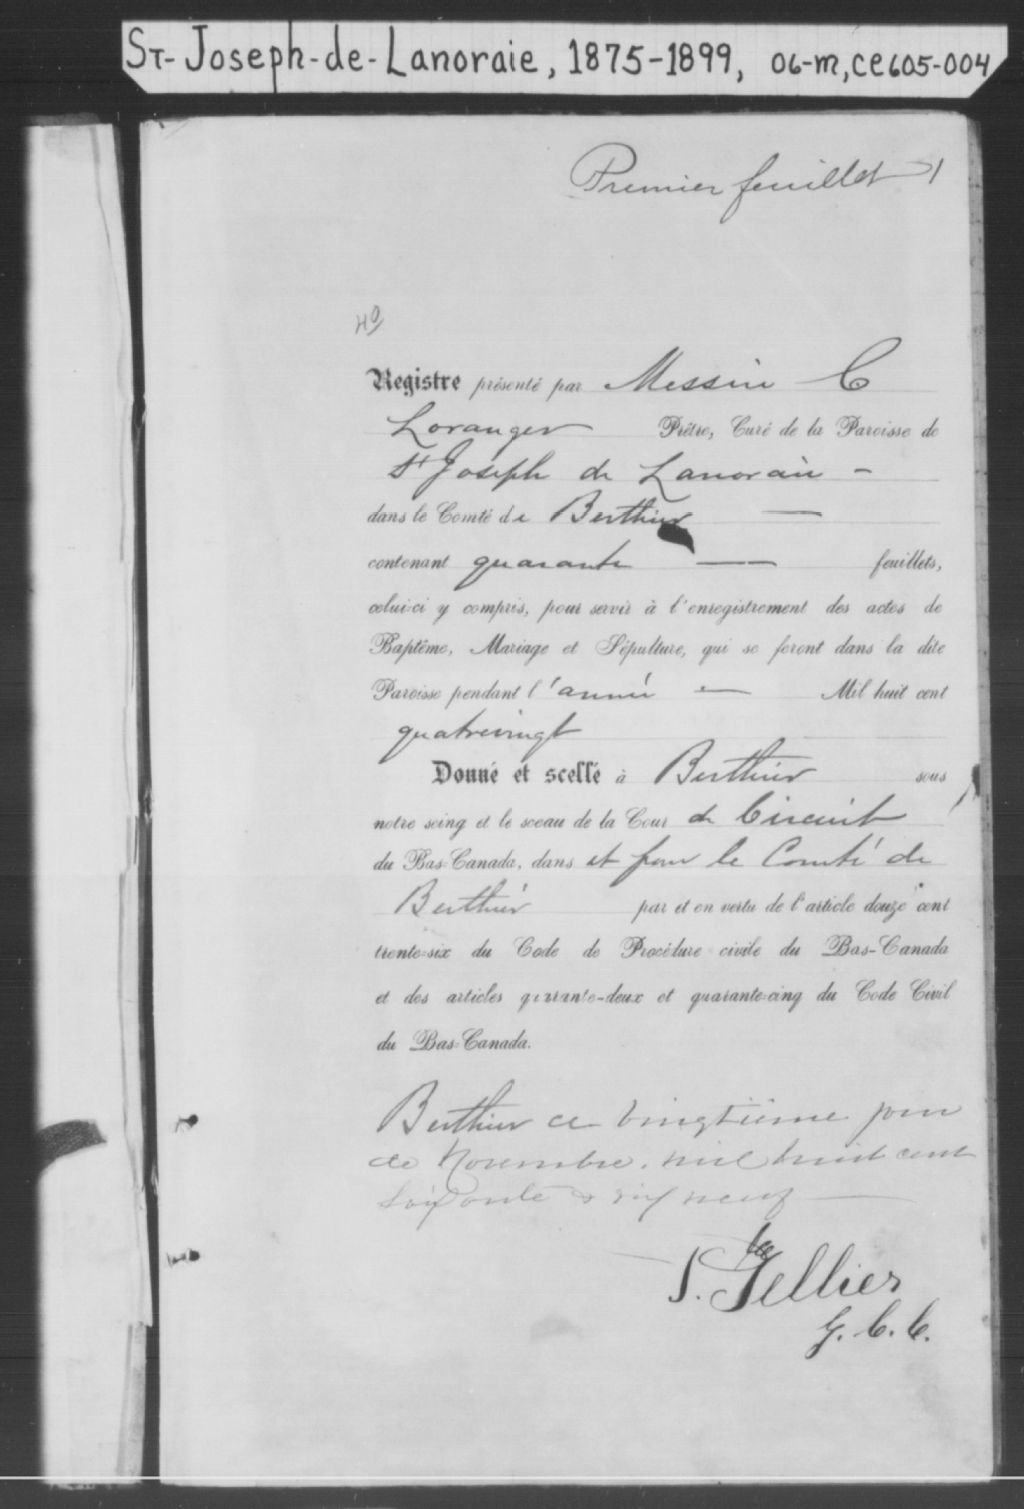 St-Joseph-de-Lanoraie, 1875-1899, 06-m, ce605-004
Premier feuillet 1
40
Registre présenté par Messire C
Loranger Prêtre, Curé de la Paroisse de
St Joseph de Lanoraie -
dans le Comté de Berthier —
contenant quarante — feuillets,
celui-ci y compris, pour servir à l'enregistrement des actes de
Baptême, Mariage et Sépulture, qui se feront dans la dite
Paroisse pendant l'année — Mil huit cent
quatrevingt
Donné et scellé à Berthier sous
notre seing et le sceau de la Cour de Circuit
du Bas-Canada, dans et pour le Comté de
Berthier par et en vertu de l'article douze cent
trente-six du Code de Procédure civile du Bas-Canada
et des articles quarante-deux et quarante-cinq du Code Civil
du Bas-Canada.
Berthier ce vingtième jour
de Novembre. mil huit cent
soixante & dix neuf —
Tellier
G. C. C.